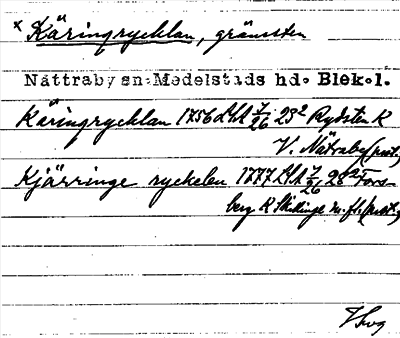 x Käringrycklan, gränssten
Nättraby sn. Medelstads hd. Blek.l.
Käringrycklan 1756 LSA 7/26 25² Rydsten K
V. Nättraby (prot.)
Kjärringe ryckelen 1777 LSA 7/26 28² Fors-
berg K Skillinge m. fl. (prot.)